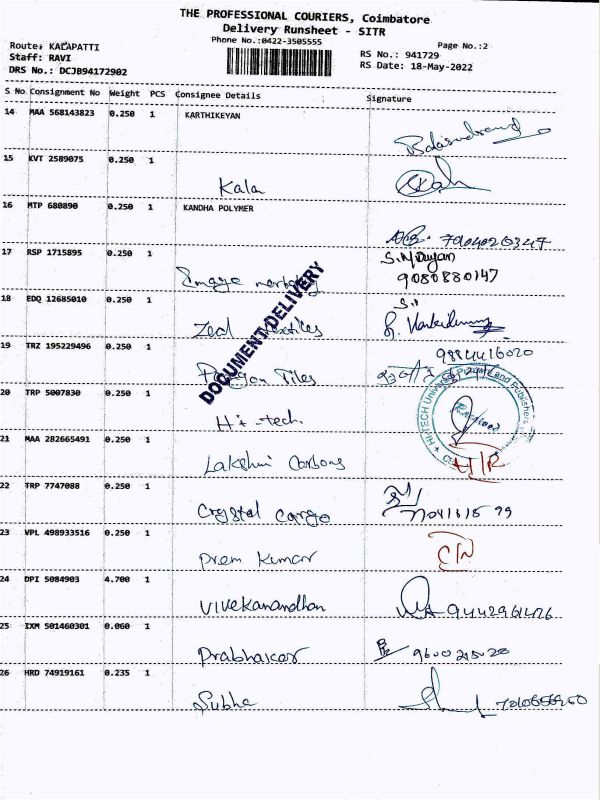 THE PROFESSIONAL COURIERS, Coimbatore
Delivery Runsheet - SITR
Phone No.:0422-3505555
Page No.:2
Route: KALAPATTI
Staff: RAVI
DRS No.: DCJB94172902
RS No.: 941729
RS Date: 18-May-2022
S No Consignment No Weight PCS Consignee Details Signature
14 MAA 568143823 0.250 1 KARTHIKEYAN
15 KVT 2589075 0.250 1
Kala
16 MTP 680890 0.250 1 KANDHA POLYMER
17 RSP 1715895 0.250 1
Image
9080880147
18 EDQ 12685010 0.250 1
Zed
DOCUMENT DELIVERY
19 TRZ 195229496 0.250 1
9884416020
Tiles
20 TRP 5007830 0.250 1
Hi-tech.
HI-TECH
Received
21 MAA 282665491 0.250 1
Lakshmi Carbons
H/R
22 TRP 7747088 0.250 1
Crystal Cargo
23 VPL 498933516 0.250 1
Prem Kumar
24 DPI 5084903 4.700 1
Vivekanandhan
25 IXM 501460301 0.060 1
Prabhakar 9600215028
26 HRD 74919161 0.235 1
Subha